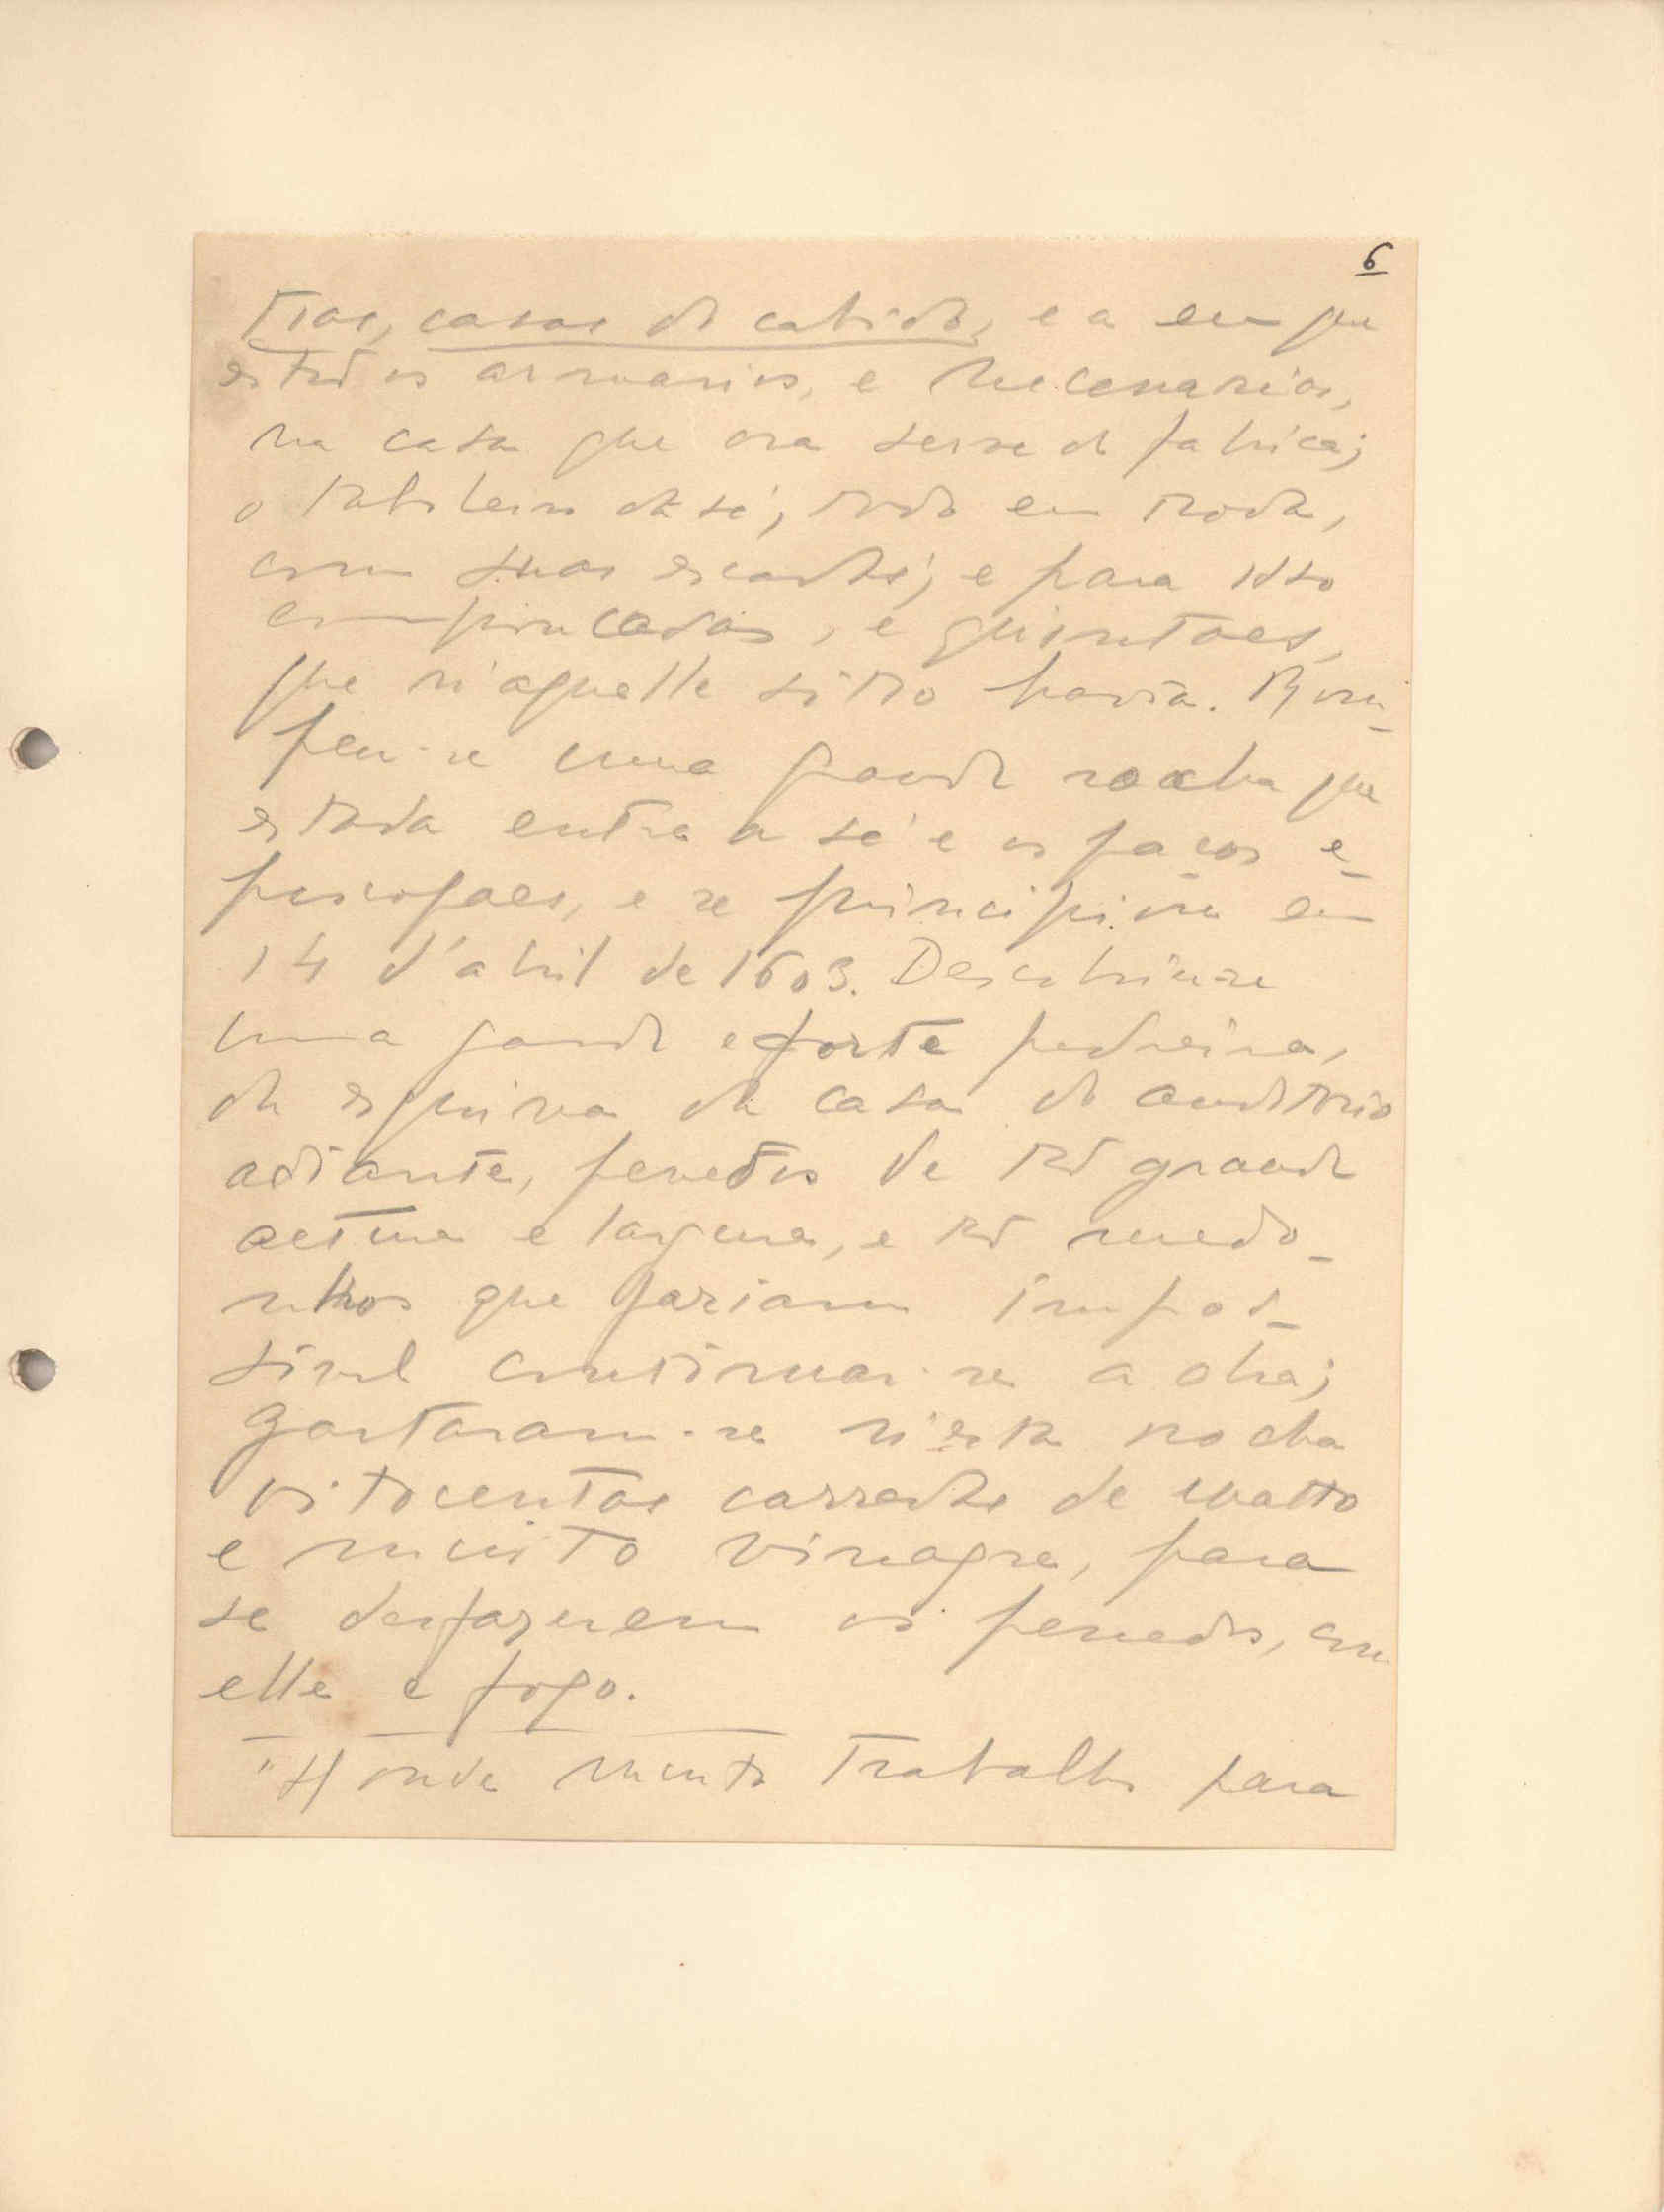 6
tras, casas do cabido, e a em que
estão os armarios, e necessarias,
na casa que ora serve de fabrica;
o taboleiro da sé, todo em roda,
com suas escadas; e para isso
comprou casas, e quintaes,
que n'aquelle sitio havia. Rom-
peu-se uma grande rocha que
estava entre a sé e os paços e-
piscopaes, e se principiou em
14 d'abril de 1603. Descobriu-se
uma grande e forte pedreira,
da esquina da casa do auditorio
adiante, penedos de tão grande
altura e largura, e tão medo-
nhos que faziam impos-
sivel continuar-se a obra;
gastaram-se n'esta rocha
oitocentas carradas de matto
e muito vinagre, para
se desfazerem os penedos, com
elle e fogo.
"Houve muito trabalho para